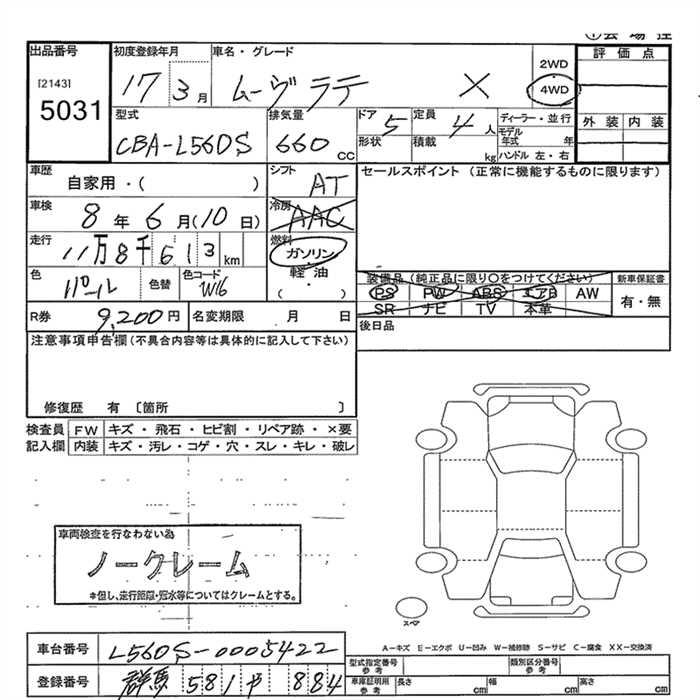 出品番号
[2143]
5031
初度登録年月
17 3月
車名・グレード
ムーヴ ラテ X
2WD
4WD
評価点
外装 内装
型式
CBA-L560S
排気量
660 CC
ドア 5
形状
定員 4 人
積載 kg
ディーラー・並行
モデル年式 年
ハンドル 左・右
車歴
自家用・( )
シフト
AT
セールスポイント (正常に機能するものに限ります)
車検
8 年 6 月(10 日)
冷房
AAC
走行
11万8千613km
燃料
ガソリン
軽油
( ・ )
色
パール
色替
色コード
W16
装備品 (純正品に限り○をつけてください)
PS PW ABS エアB AW
SR ナビ TV 本革
新車保証書
有・無
R券
9,200円
名変期限 月 日
後日品
注意事項申告欄(不具合内容等は具体的に記入して下さい)
修復歴 有 〔箇所 〕
検査員 FW キズ・飛石・ヒビ割・リペア跡・×要
記入欄 内装 キズ・汚レ・コゲ・穴・スレ・キレ・破レ
車両検査を行なわない為
ノークレーム
*但し、走行距離・冠水等についてはクレームとする。
スペア
A-キズ E-エクボ U-凹み W-補修跡 S-サビ C-腐食 XX-交換済
車台番号
L560S-0005422
登録番号
群馬 581 や 884
型式指定番号 参考
類別区分番号 参考
車庫証明用 参考
長さ cm
幅 cm
高さ cm